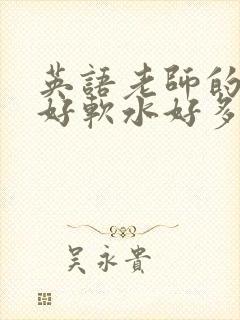 英語老師的
好軟水好多
吴永貴